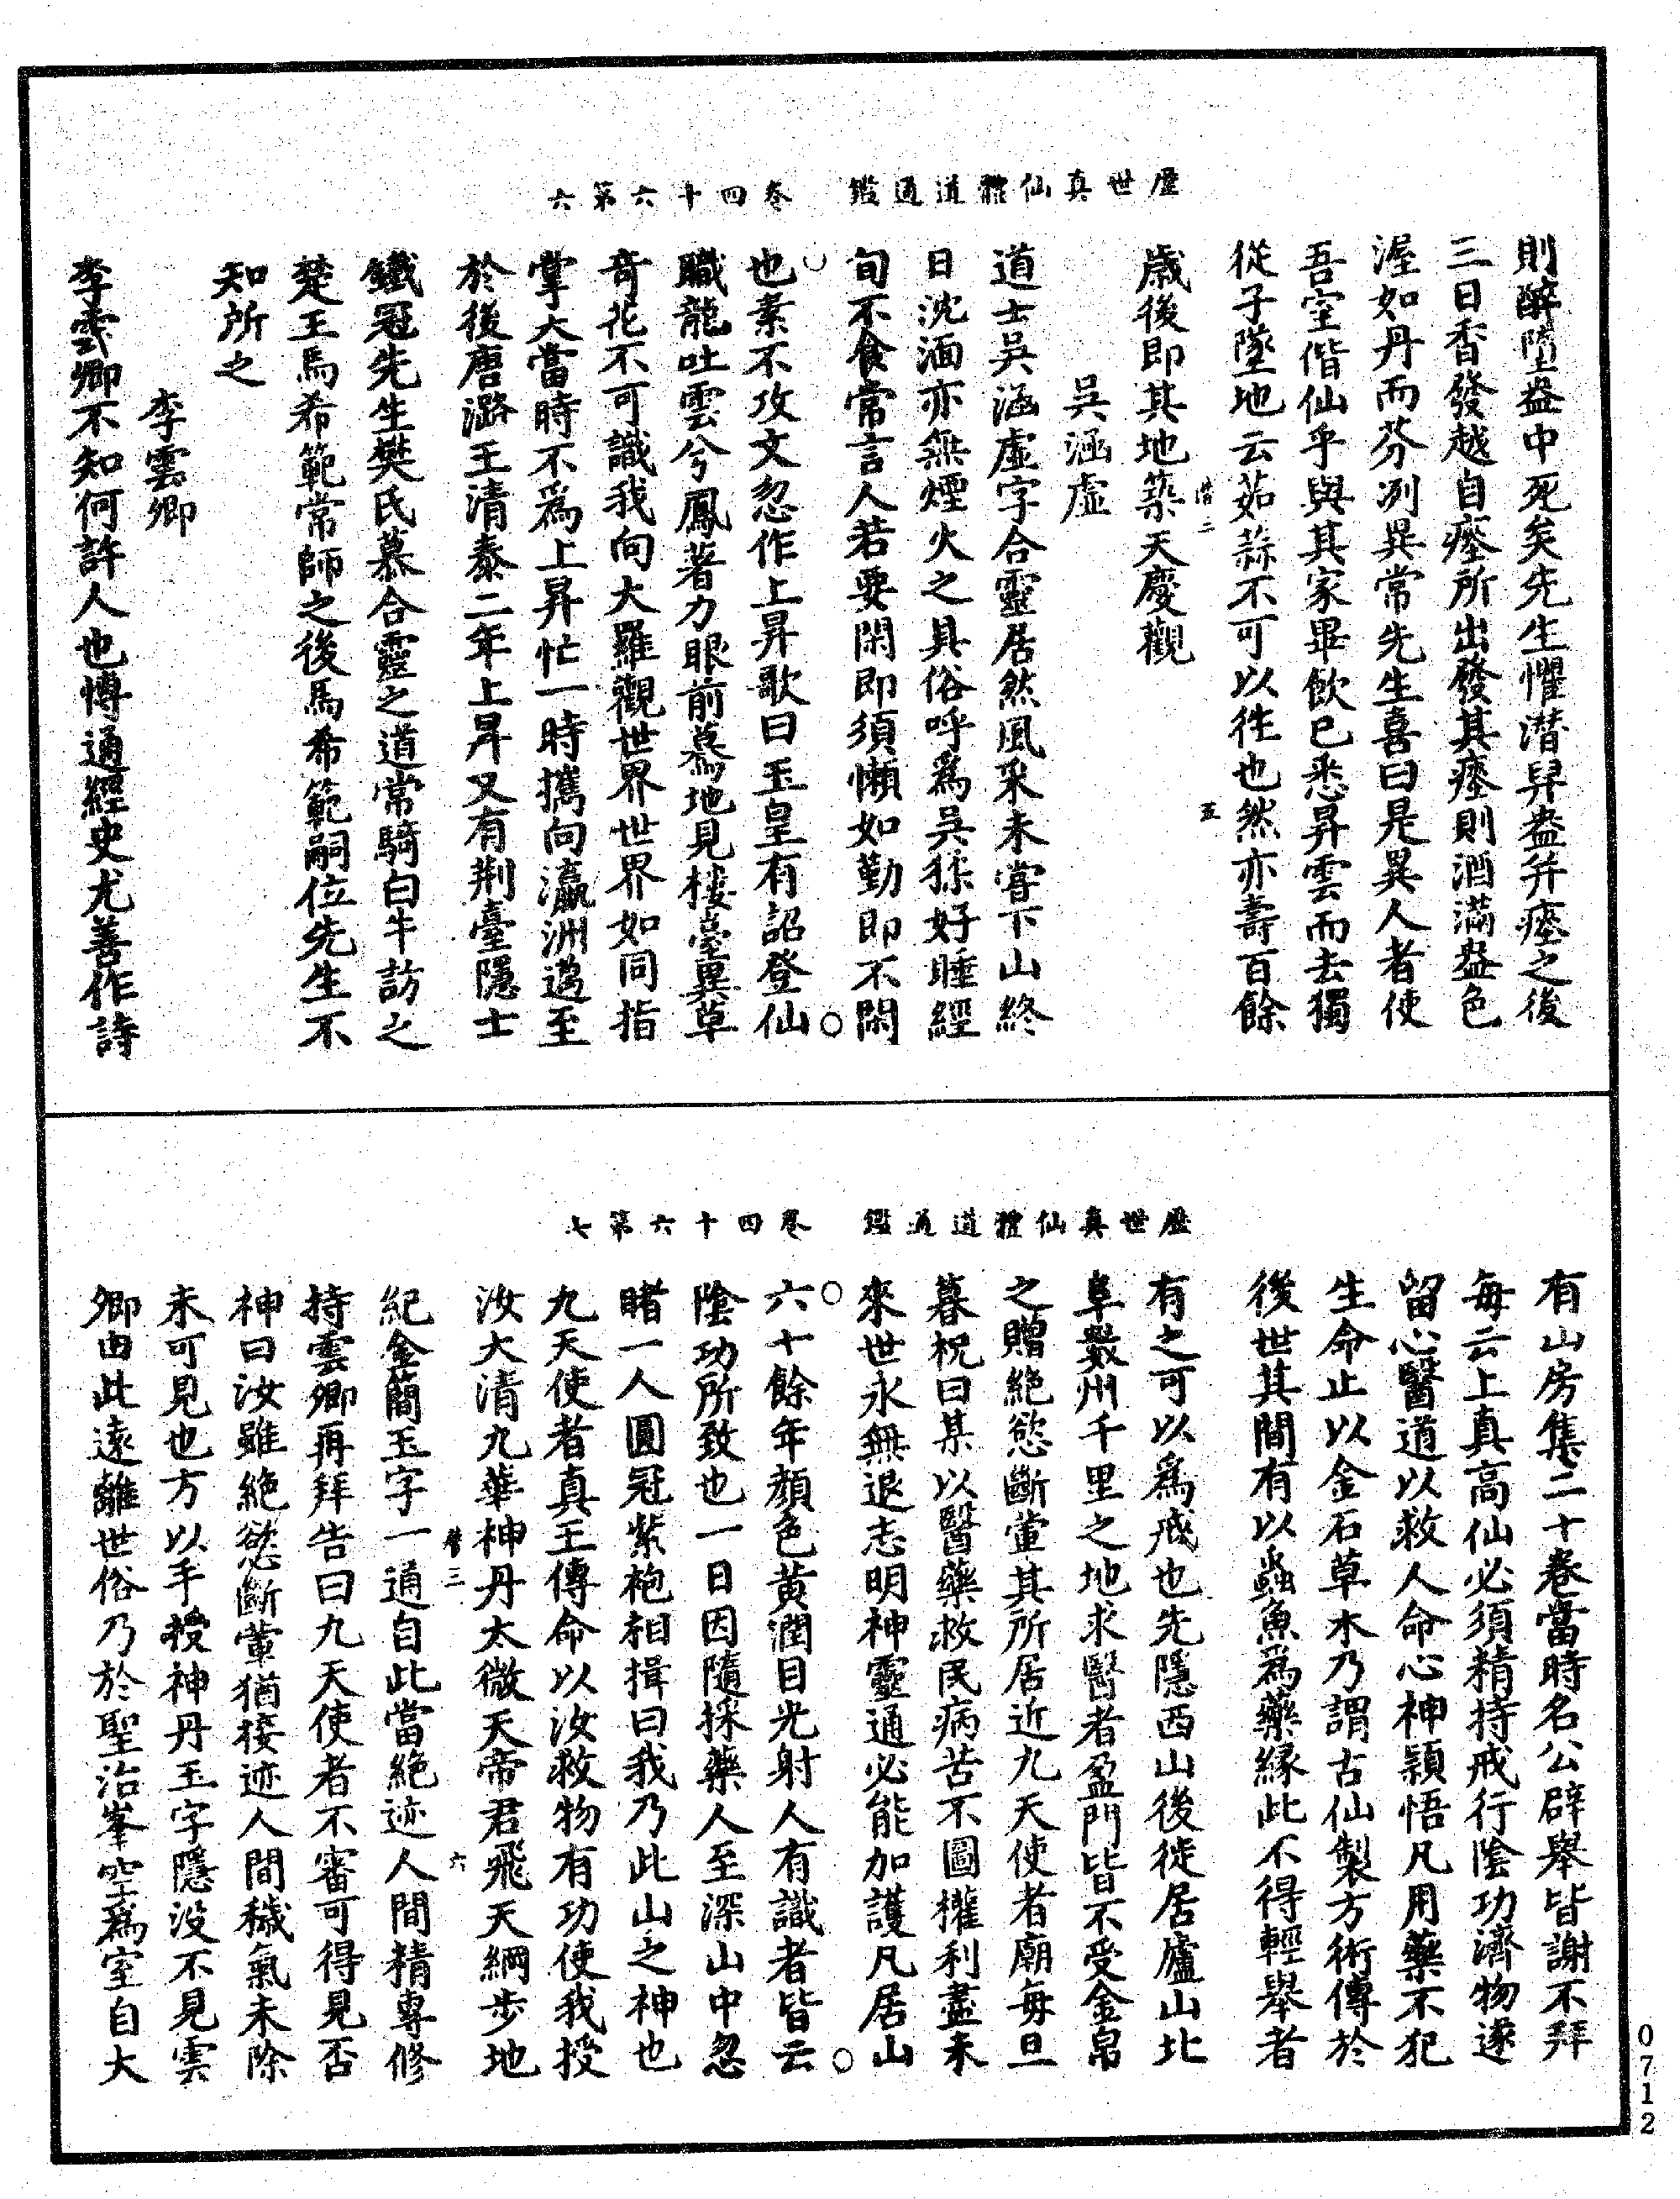 歷世真仙體道通鑑　卷四十六第六
則醉墮盎中死矣先生懼潛舁盎并瘞之後
三日香發越自瘞所出發其瘞則酒滿盎色
渥如丹而芬冽異常先生喜曰是異人者使
吾室偕仙乎與其家畢飲已悉昇雲而去獨
從子墜地云茹蒜不可以往也然亦壽百餘
五
歲後即其地築天慶觀
吳涵虛
道士吳涵虛字合靈居然風采未嘗下山終
日沈湎亦無煙火之具俗呼為吳猱好睡經
旬不食常言人若要閑即須懶如勤即不閑
也素不攻文忽作上昇歌曰玉皇有詔登仙
職龍吐雲兮鳳著力眼前驀地見樓臺異草
奇花不可識我向大羅觀世界世界如同指
掌大當時不為上昇忙一時攜向瀛洲邁至
於後唐潞王清泰二年上昇又有荆臺隱士
鐵冠先生樊氏慕合靈之道常騎白牛訪之
楚王馬希範常師之後馬希範嗣位先生不
知所之
李雲卿
李雲卿不知何許人也博通經史尤善作詩
歷世真仙體道通鑑　卷四十六第七
有山房集二十卷當時名公辟舉皆謝不拜
每云上真高仙必須精持戒行陰功濟物遂
留心醫道以救人命心神穎悟凡用藥不犯
生命止以金石草木乃謂古仙製方術傳於
後世其間有以蟲魚為藥緣此不得輕舉者
有之可以為戒也先隱西山後徙居廬山北
阜數州千里之地求醫者盈門皆不受金帛
之贈絕慾斷葷其所居近九天使者廟每旦
暮祝曰某以醫藥救民病苦不圖權利盡未
來世永無退志明神靈通必能加護凡居山
六十餘年顏色黃潤目光射人有識者皆云
陰功所致也一日因隨採藥人至深山中忽
睹一人圓冠紫袍相揖曰我乃此山之神也
九天使者真王傳命以汝救物有功使我授
汝大清九華神丹太微天帝君飛天綱步地
三　六
紀金簡玉字一通自此當絕迹人間精專修
持雲卿再拜告曰九天使者不審可得見否
神曰汝雖絕慾斷葷猶接迹人間穢氣未除
未可見也方以手授神丹玉字隱沒不見雲
卿由此遠離世俗乃於聖治峯空為室自大
0712